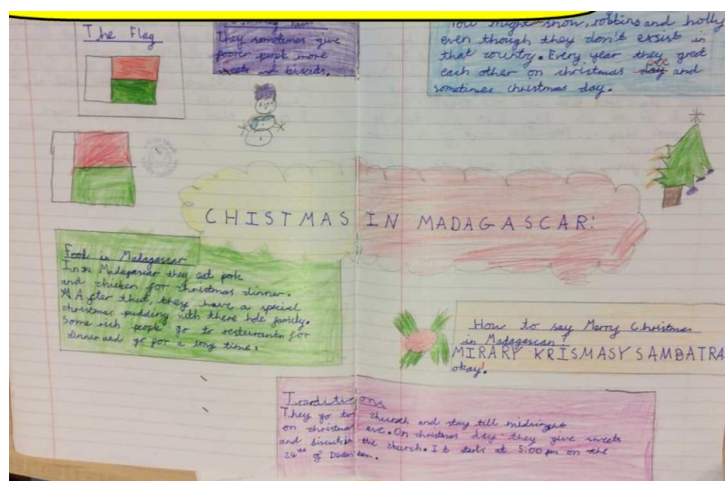 The Flag
They sometimes give
poorer people more
sweets and biscuits.
You might show, robbins and holly
even though they don't exsist in
that country. Every year they greet
each other on christmas eve and
sometimes christmas day.
CHISTMAS IN MADAGASCAR!
Food in Madagascar
In Madagascar they eat pork
and chicken for christmas dinner.
After that, they have a special
christmas pudding with there hole family.
Some rich people go to resteraunts for
dinner and go for a long time.
How to say Merry Christmas
in Madagascan
MIRARY KRISMASY SAMBATRA
okay!
Traditions
They go to church and stay till midnight
on christmas eve. On christmas day they give sweets
and biscuits in the church. It starts at 5:00pm on the
24th of December.